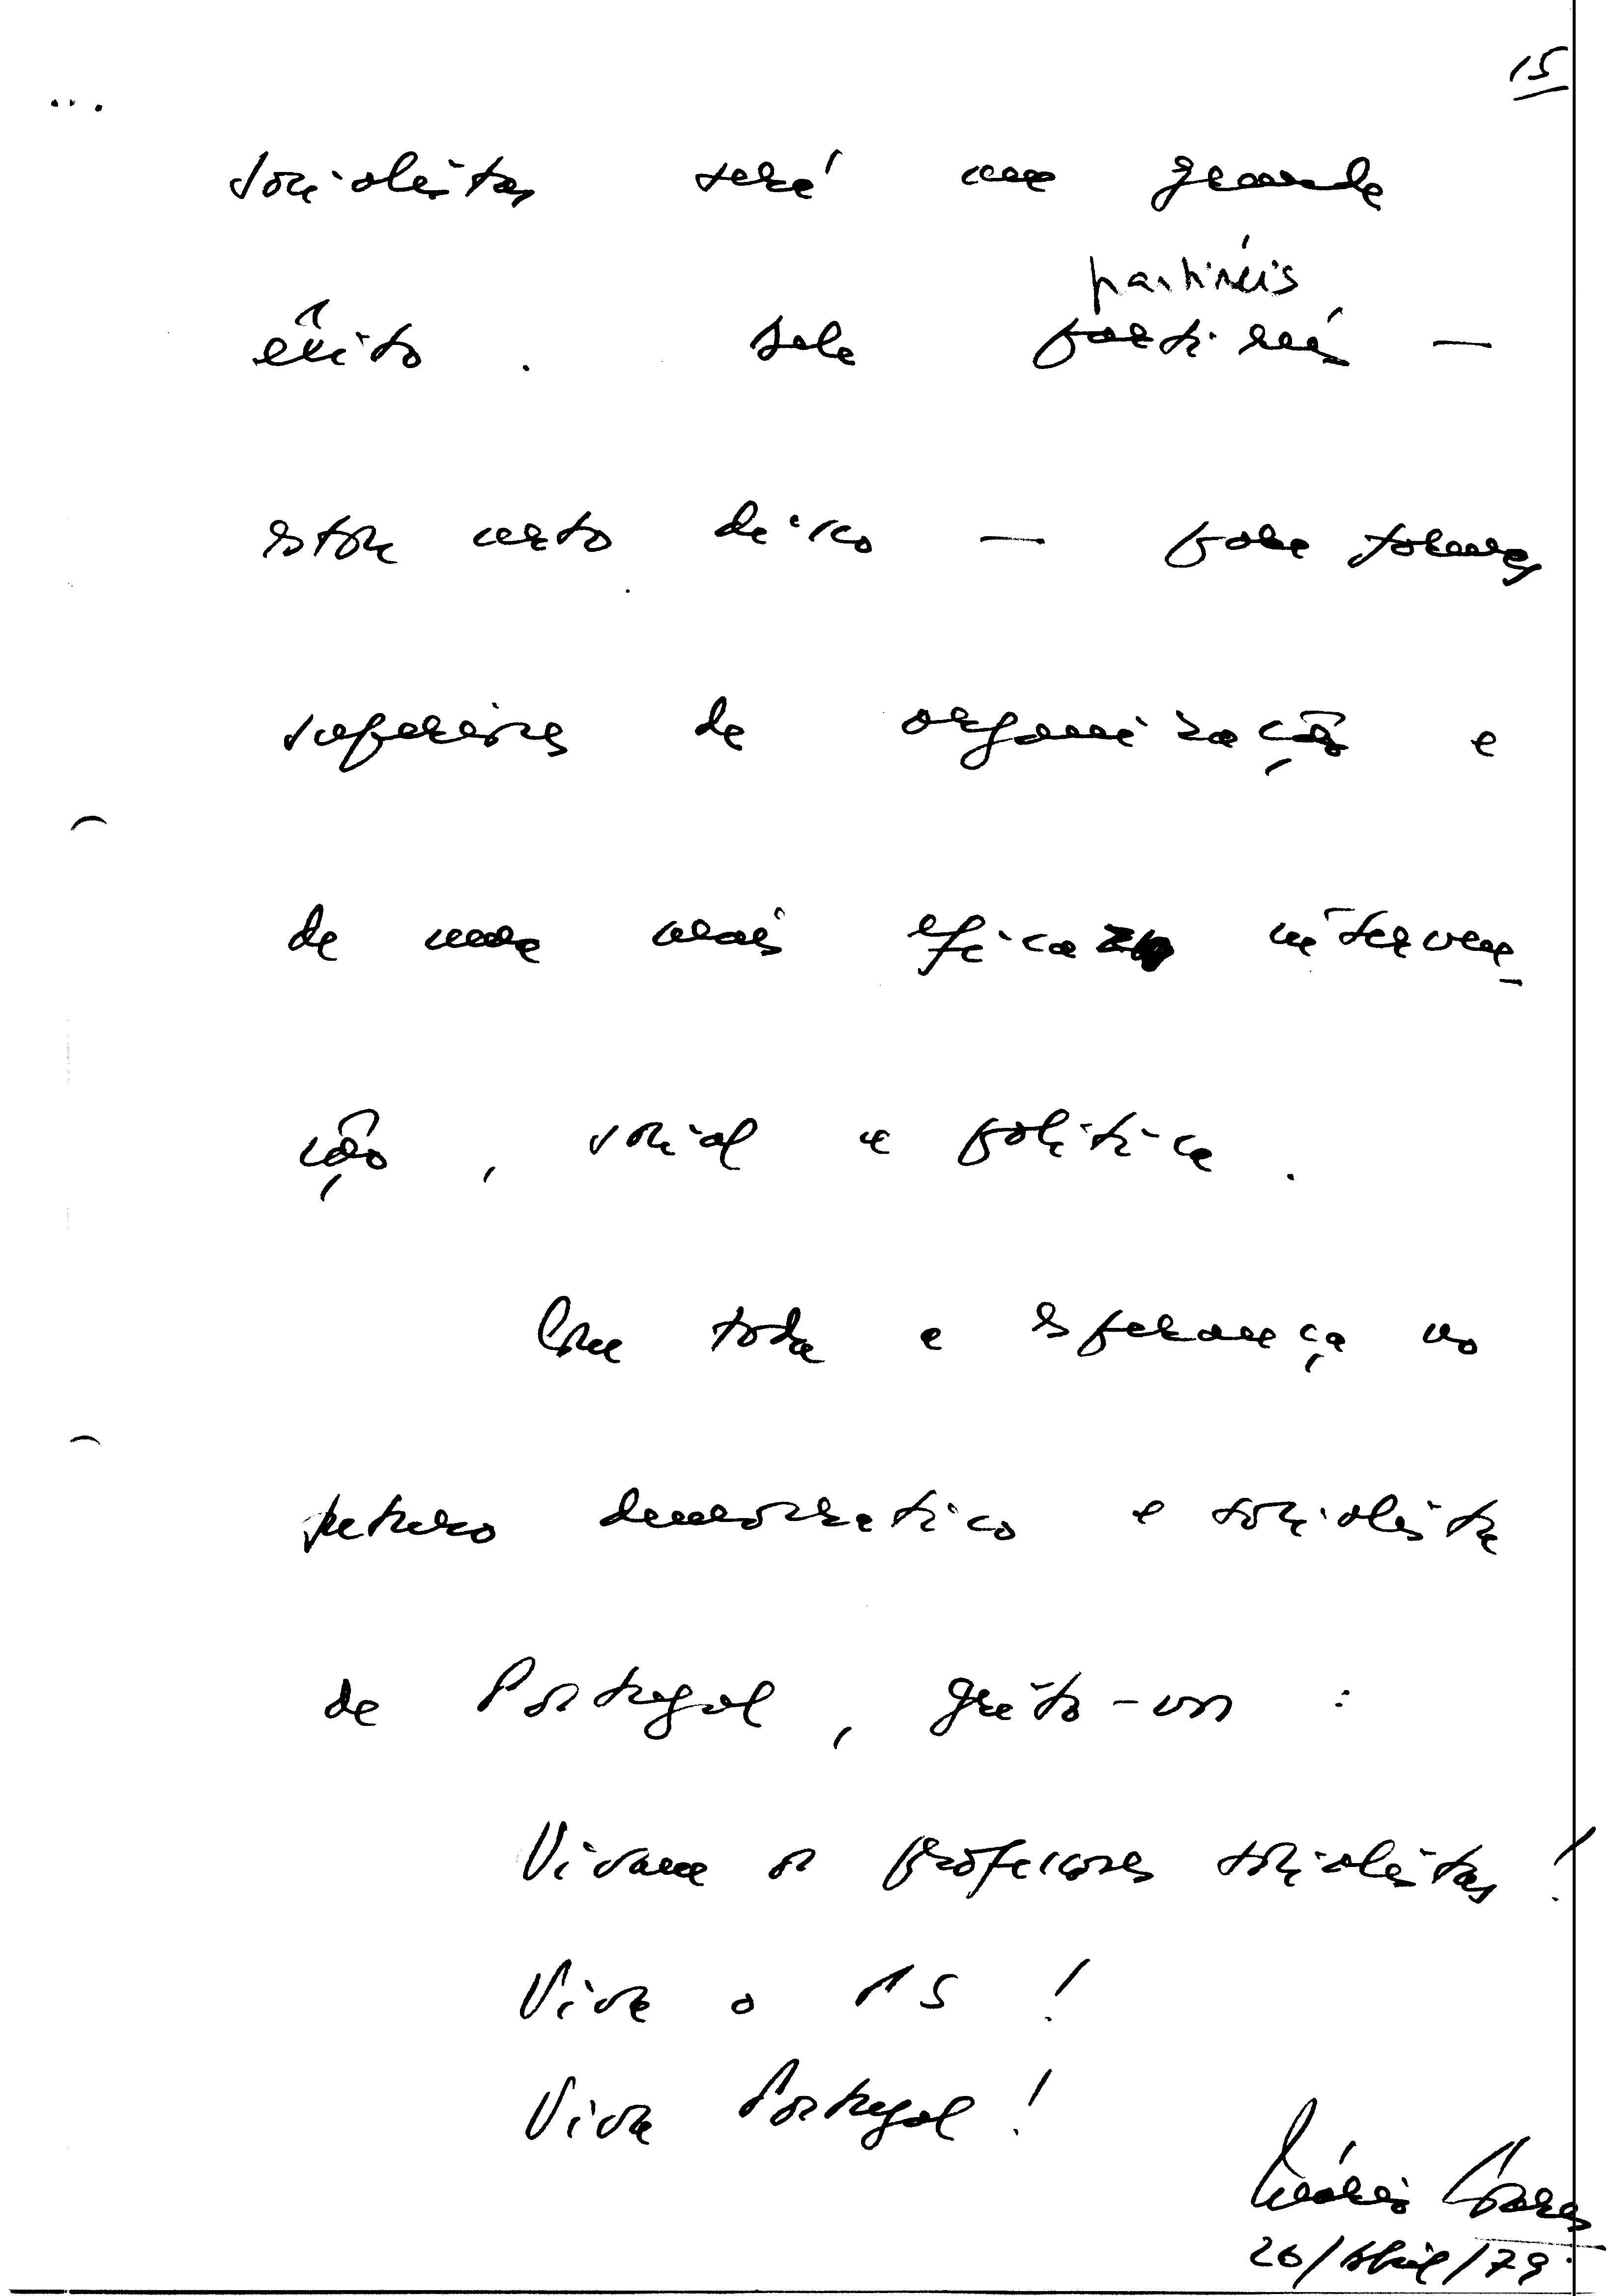 15
...
socialistas será um grande
partireis
êxito. Dele partireis —
estou certo disso — para formas
superiores de organização e
de uma mais eficaz interven-
ção, social e política.
Com toda a esperança no
futuro democratico e socialista
de Portugal, grito-vos:
Vivam os professores socialistas!
Viva o PS!
Viva Portugal!
Mário Soares
26/Abril/79.